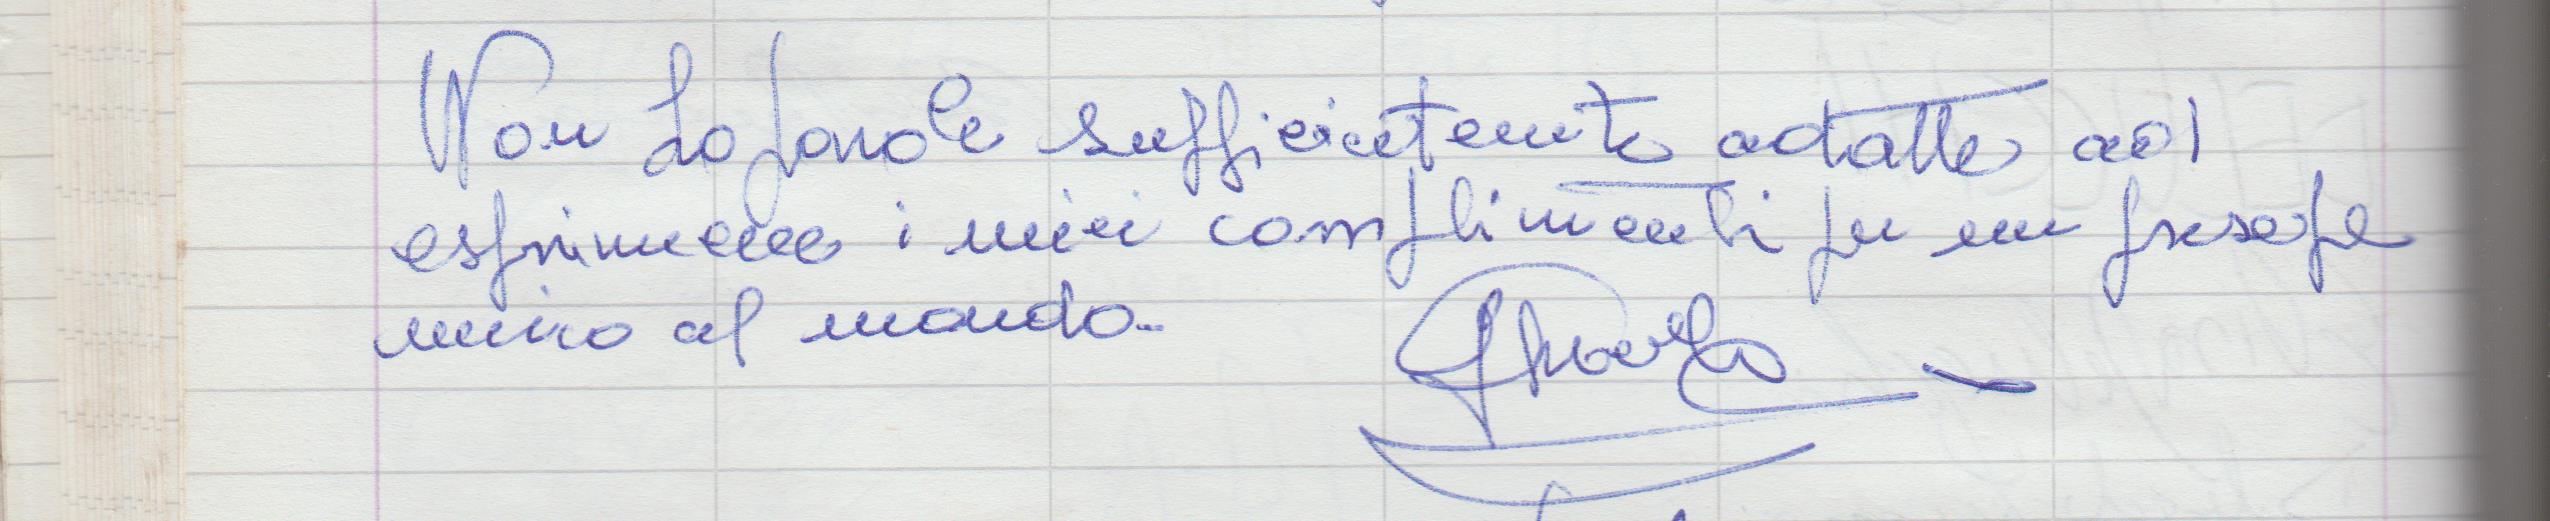 Non ho parole sufficientemente adatte ad
esprimere i miei complimenti per un presepe
unico al mondo..